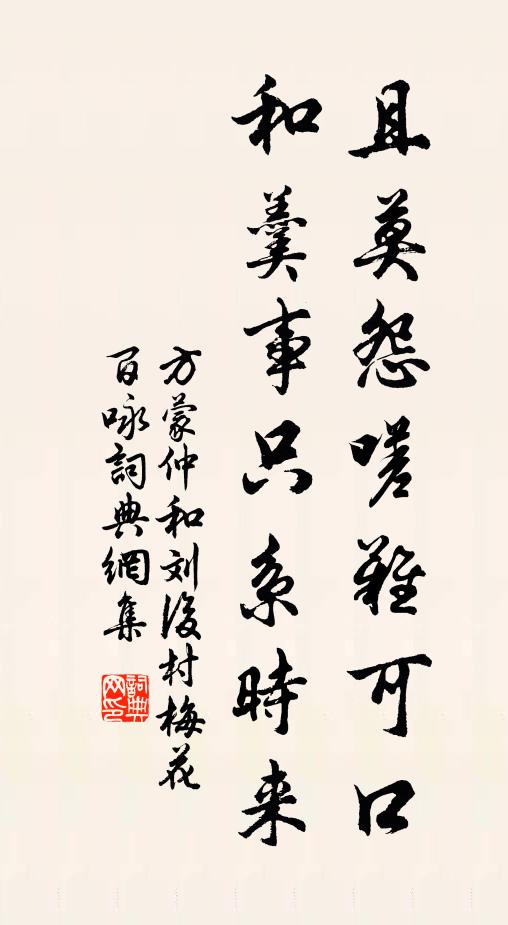 且莫怨嗟難可口
和羹事只系時来
方蒙仲和刘後村梅花
百咏詞典網集
詞典
网印